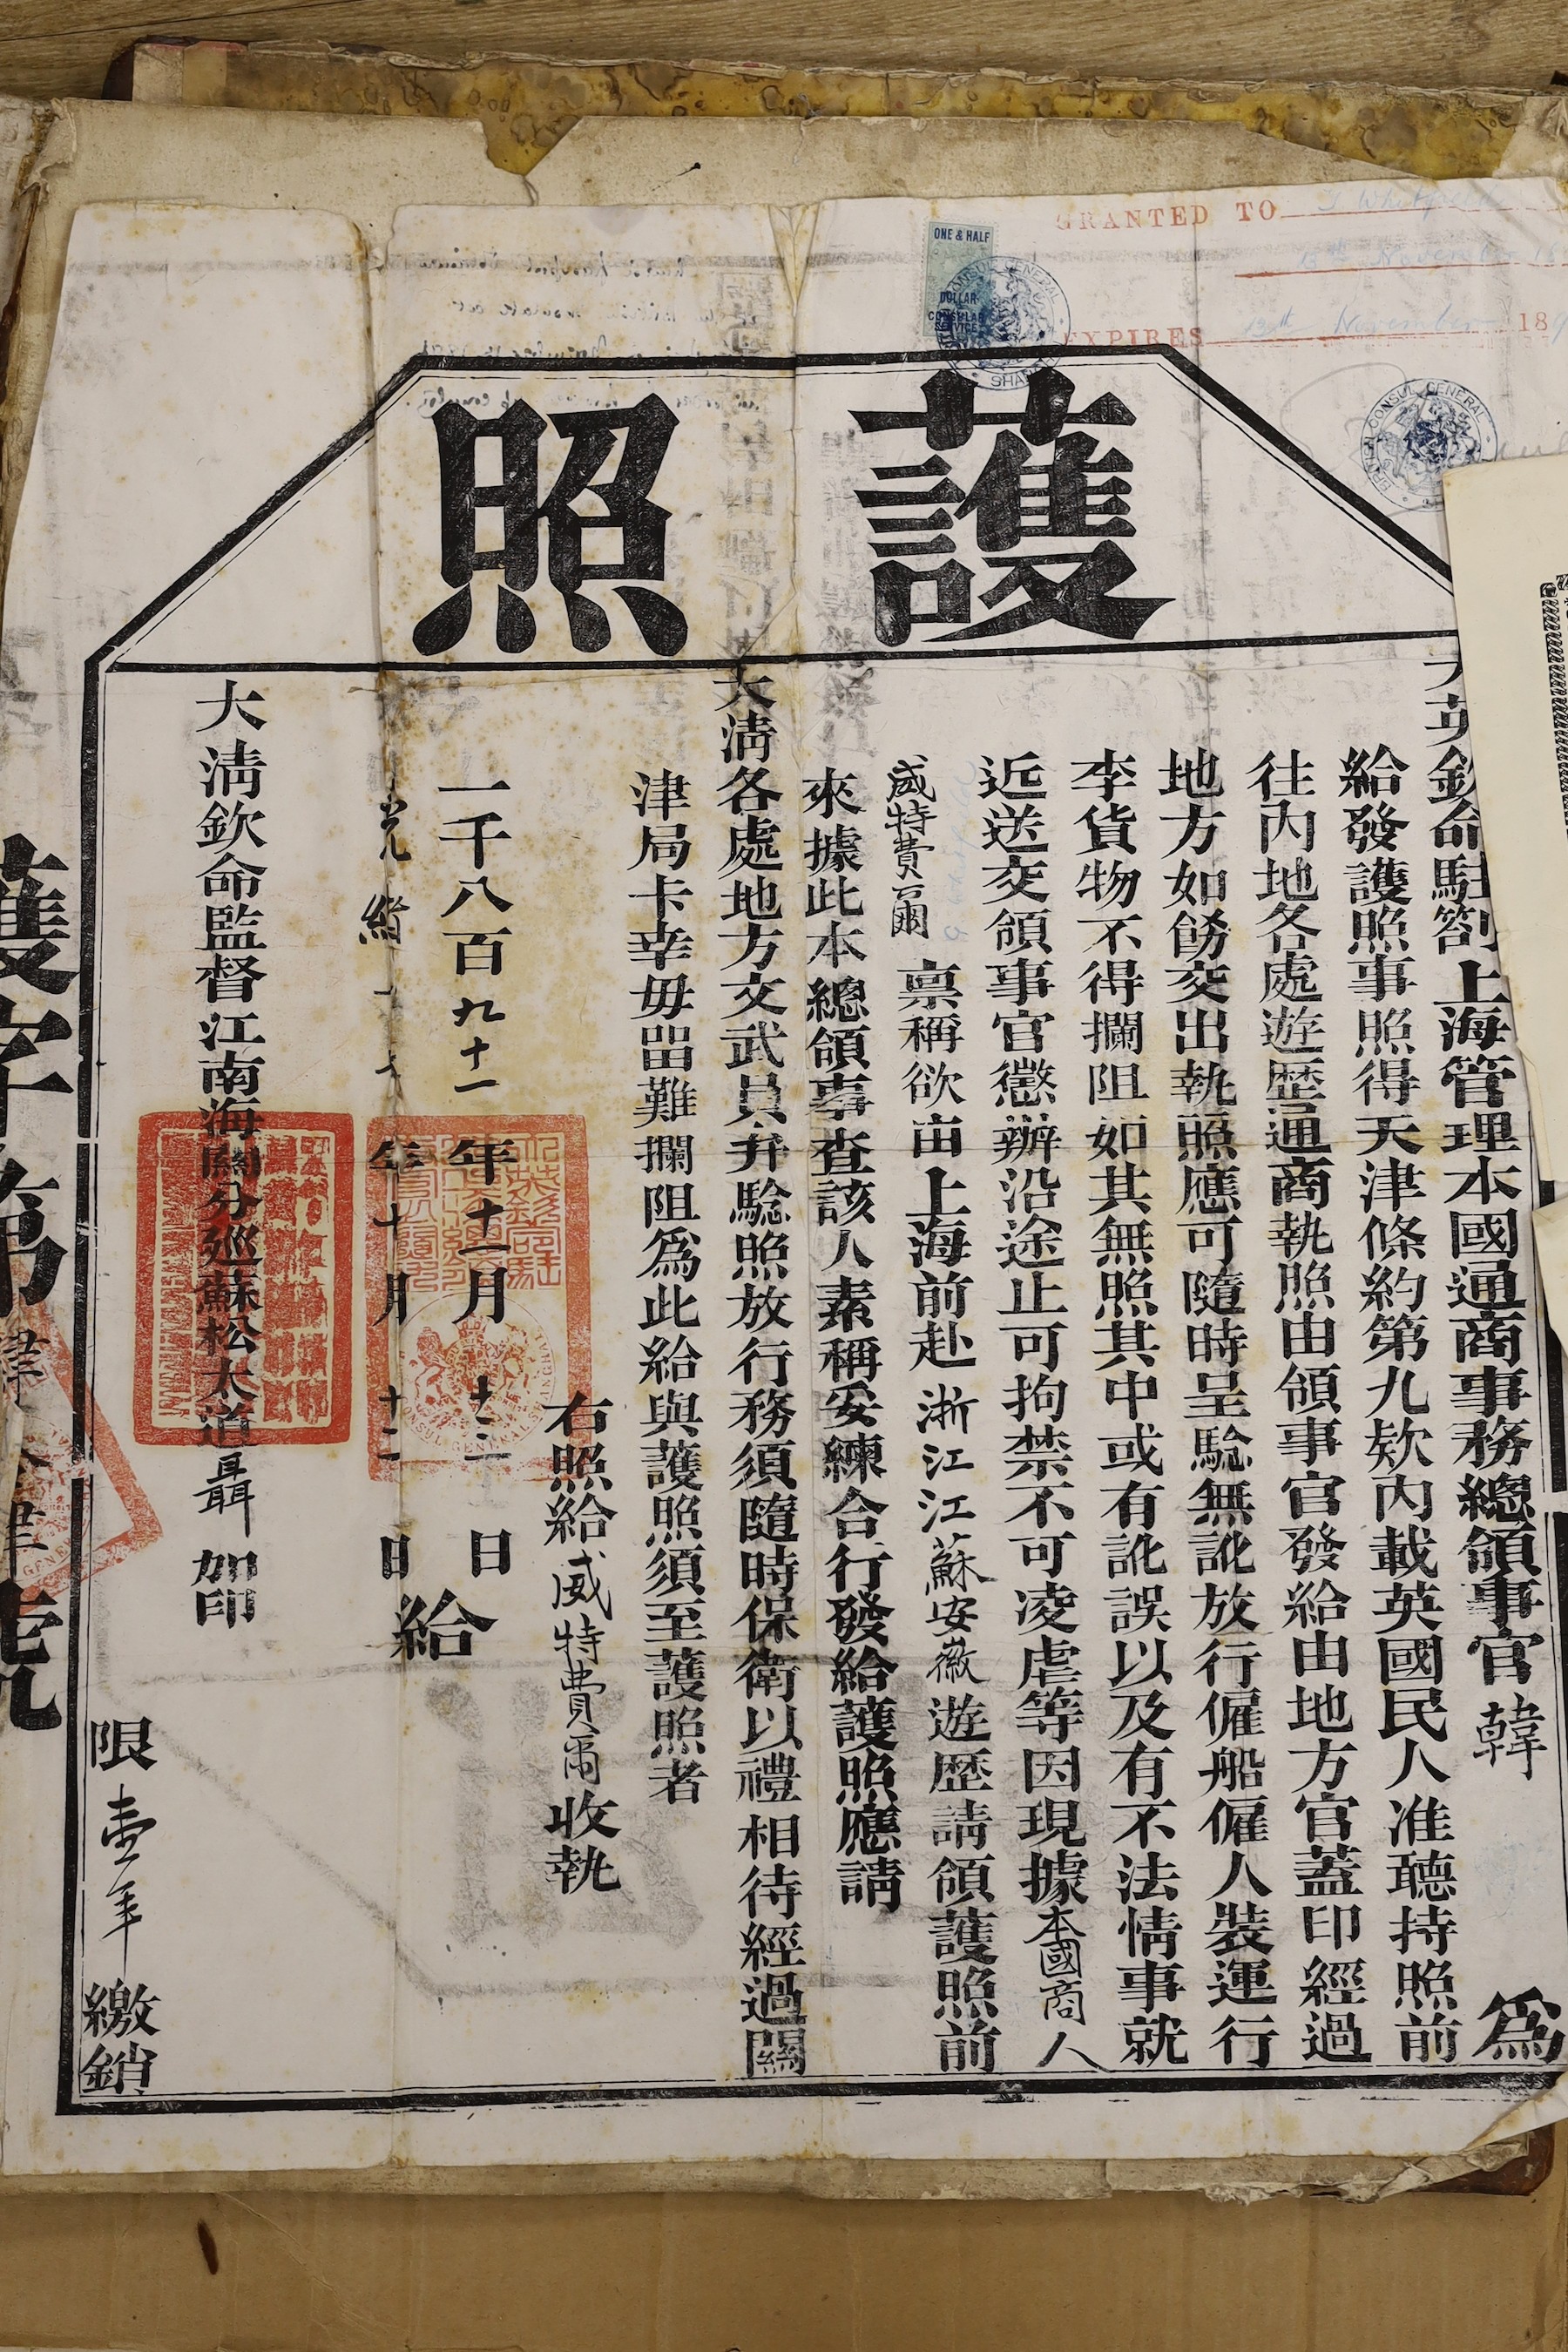 GRANTED TO J Whitfield
13th November 18
EXPIRES 13th November 18
ONE & HALF
DOLLAR
CONSULAR
SERVICE
BRITISH CONSUL GENERAL
護照
大英欽命駐劄上海管理本國通商事務總領事官韓 爲
給發護照事照得天津條約第九欵內載英國民人准聽持照前
往內地各處遊歷通商執照由領事官發給由地方官蓋印經過
地方如餙交出執照應可隨時呈驗無訛放行僱船僱人裝運行
李貨物不得攔阻如其無照其中或有訛誤以及有不法情事就
近送交領事官懲辦沿途止可拘禁不可凌虐等因現據本國商人
威特費爾 禀稱欲由上海前赴浙江江蘇安徽遊歷請領護照前
來據此本總領事查該人素稱妥練合行發給護照應請
大淸各處地方文武員弁驗照放行務須隨時保衛以禮相待經過關
津局卡幸毋留難攔阻爲此給與護照須至護照者
右照給威特費爾收執
一千八百九十一年十一月十三日
光緒十七年十月十二日
給
大淸欽命監督江南海關分巡蘇松太道聶 加印
限壹年繳銷
護字第
號